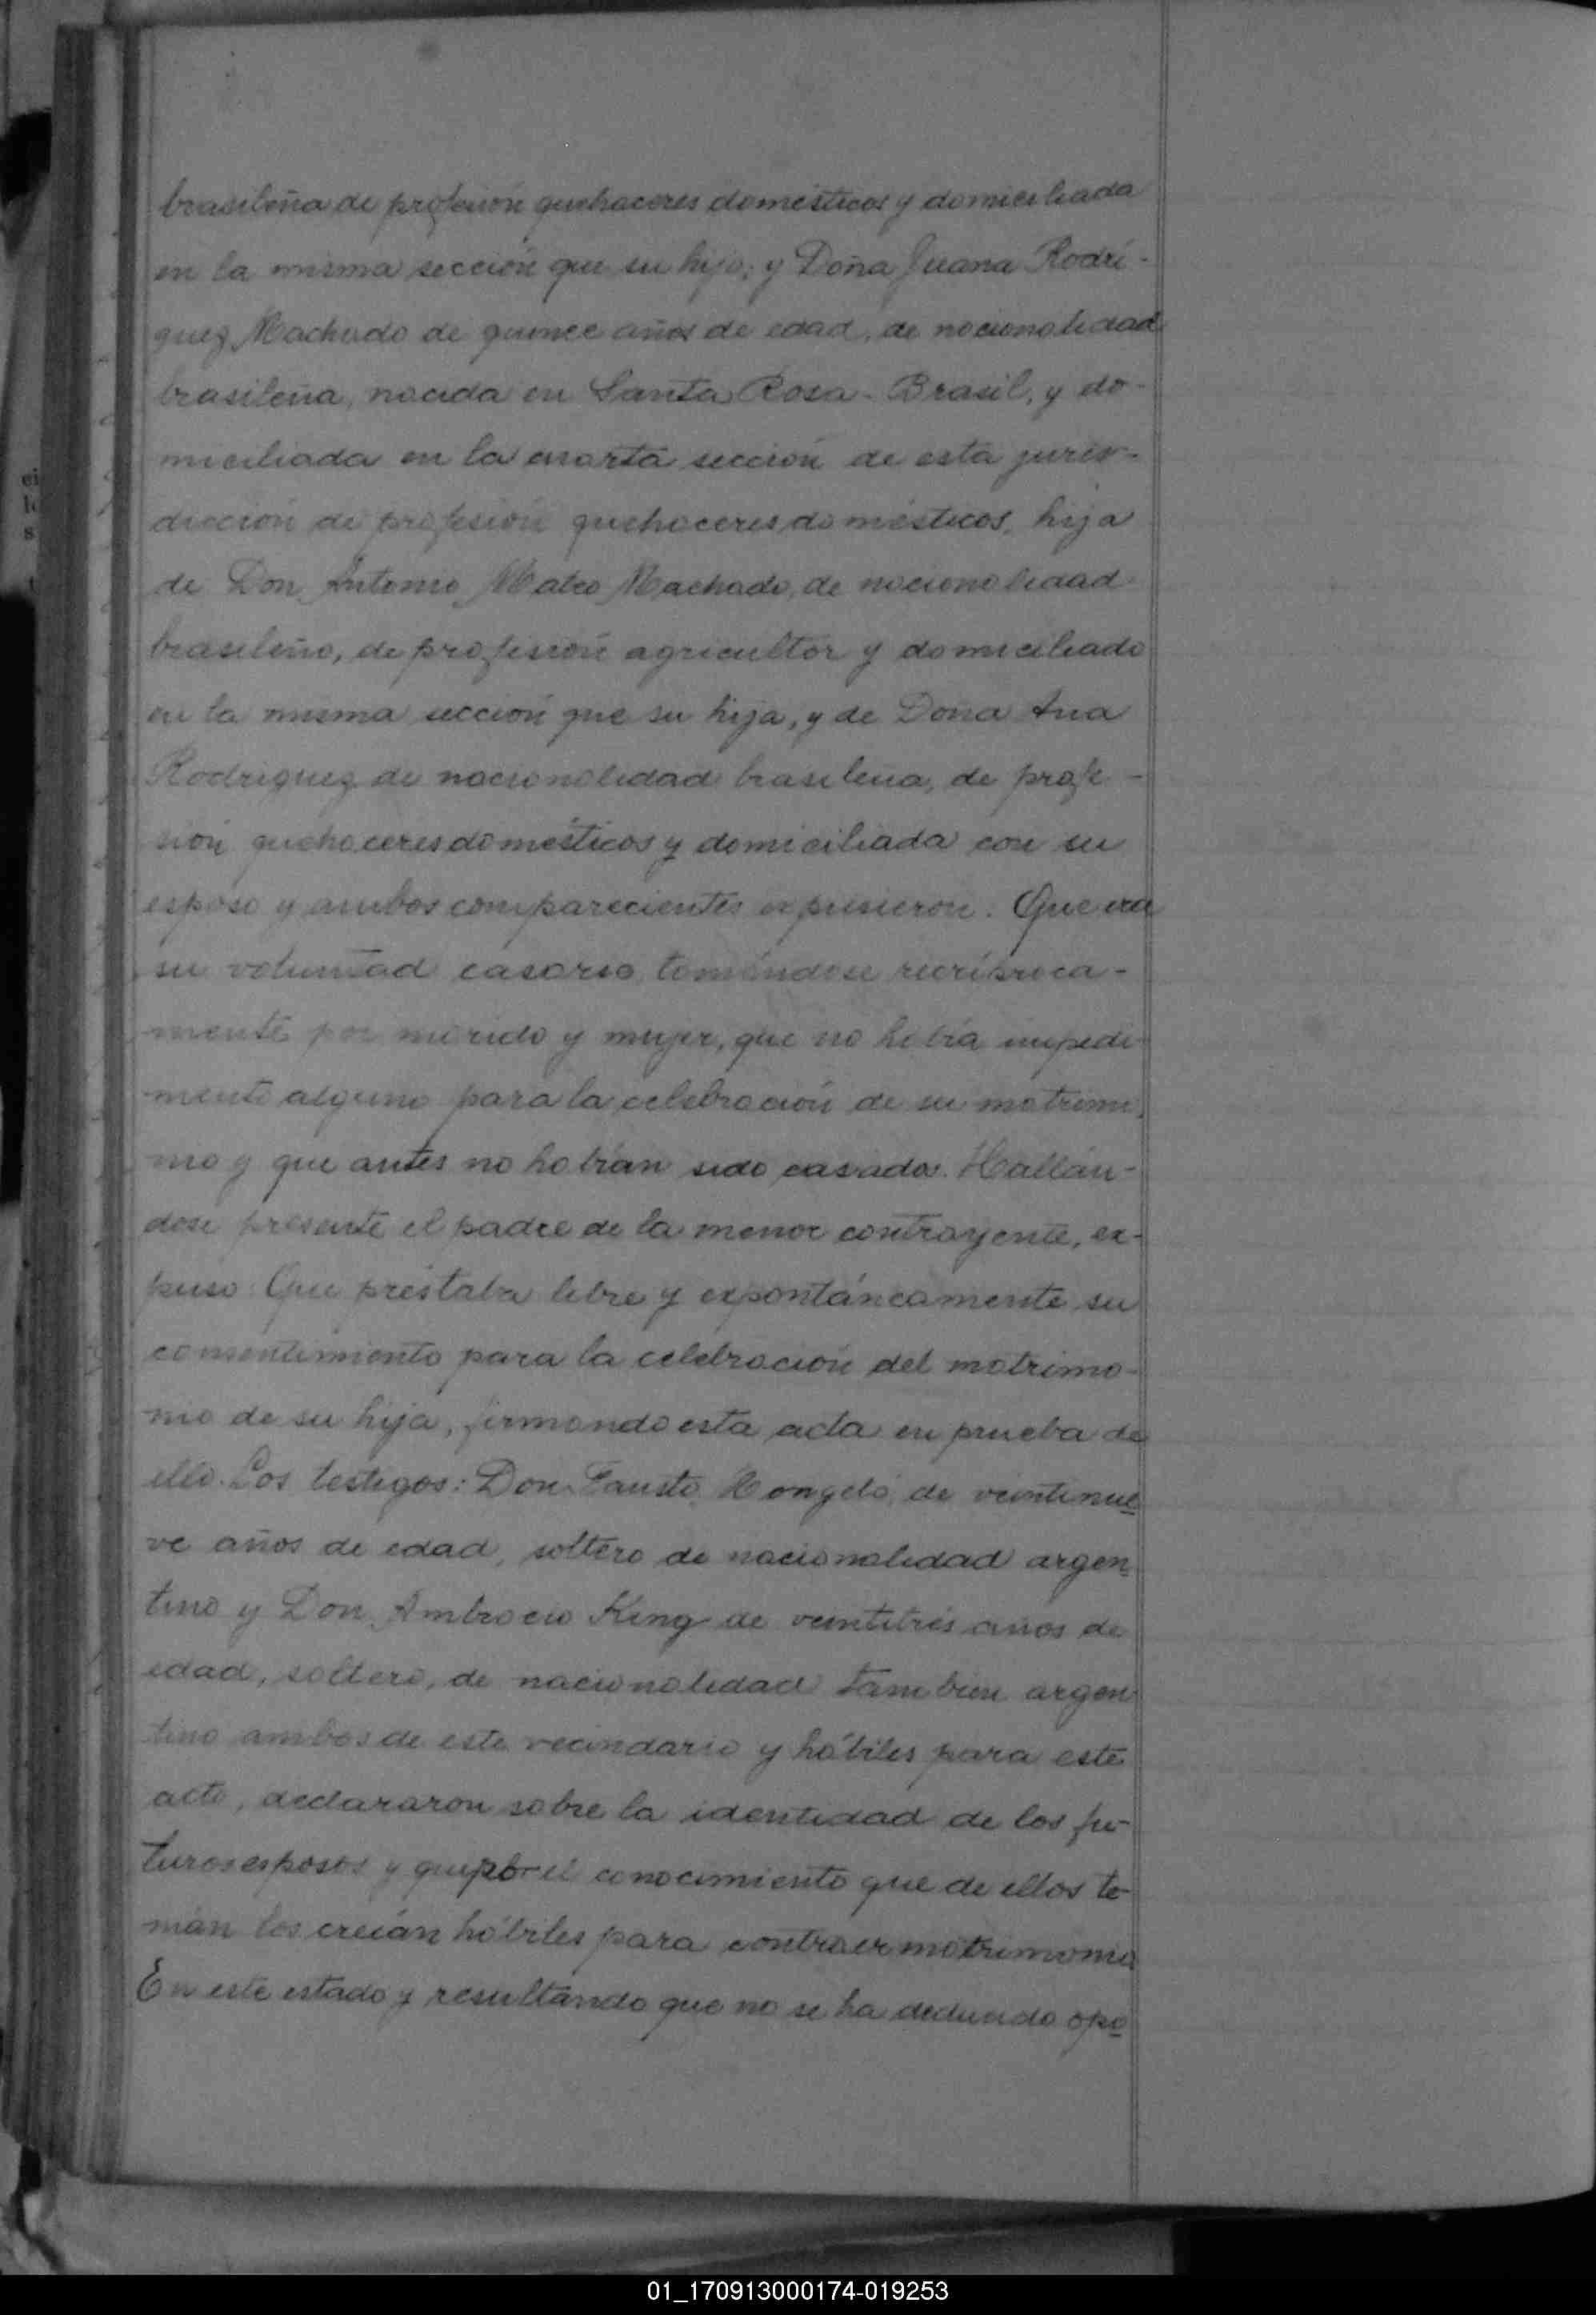 brasileña de profesión quehaceres domésticos y domiciliada
en la misma sección que su hijo; y Doña Juana Rodrí-
guez Machado de quince años de edad, de nacionalidad
brasileña, nacida en Santa Rosa - Brasil, y do-
miciliada en la cuarta sección de esta juris-
dicción de profesión quehaceres domésticos, hija
de Don Antonio Mateo Machado, de nacionalidad
brasileño, de profesión agricultor y domiciliado
en la misma sección que su hija, y de Doña Ana
Rodriguez de nacionalidad brasileña, de profe-
sión quehaceres domésticos y domiciliada con su
esposo y ambos comparecientes expusieron: Que era
su voluntad casarse, tomándose recíproca-
mente por marido y mujer, que no había impedi-
mento alguno para la celebración de su matrimo
nio y que antes no habían sido casados. Hallán-
dose presente el padre de la menor contrayente, ex-
puso: Que prestaba libre y expontáneamente su
consentimiento para la celebración del matrimo-
nio de su hija, firmando esta acta en prueba de
ello. Los testigos: Don Fausto de veintinue
ve años de edad, soltero de nacionalidad argen
tino y Don Ambrocio King de veintitrés años de
edad, soltero, de nacionalidad tambien argen
tino ambos de este vecindario y hábiles para este
acto, declararon sobre la identidad de los fu-
turos esposos y que por el conocimiento que de ellos te-
nían los creían hábiles para contraer matrimonio
En este estado y resultando que no se ha deducido opo
01_170913000174-019253